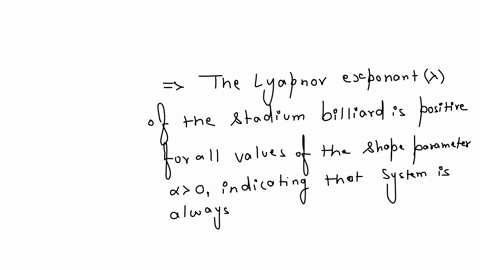 => The Lyapnov exponant (λ)
of the stadium billiard is positive
for all values of the shape parameter
α>0, indicating that system is
always